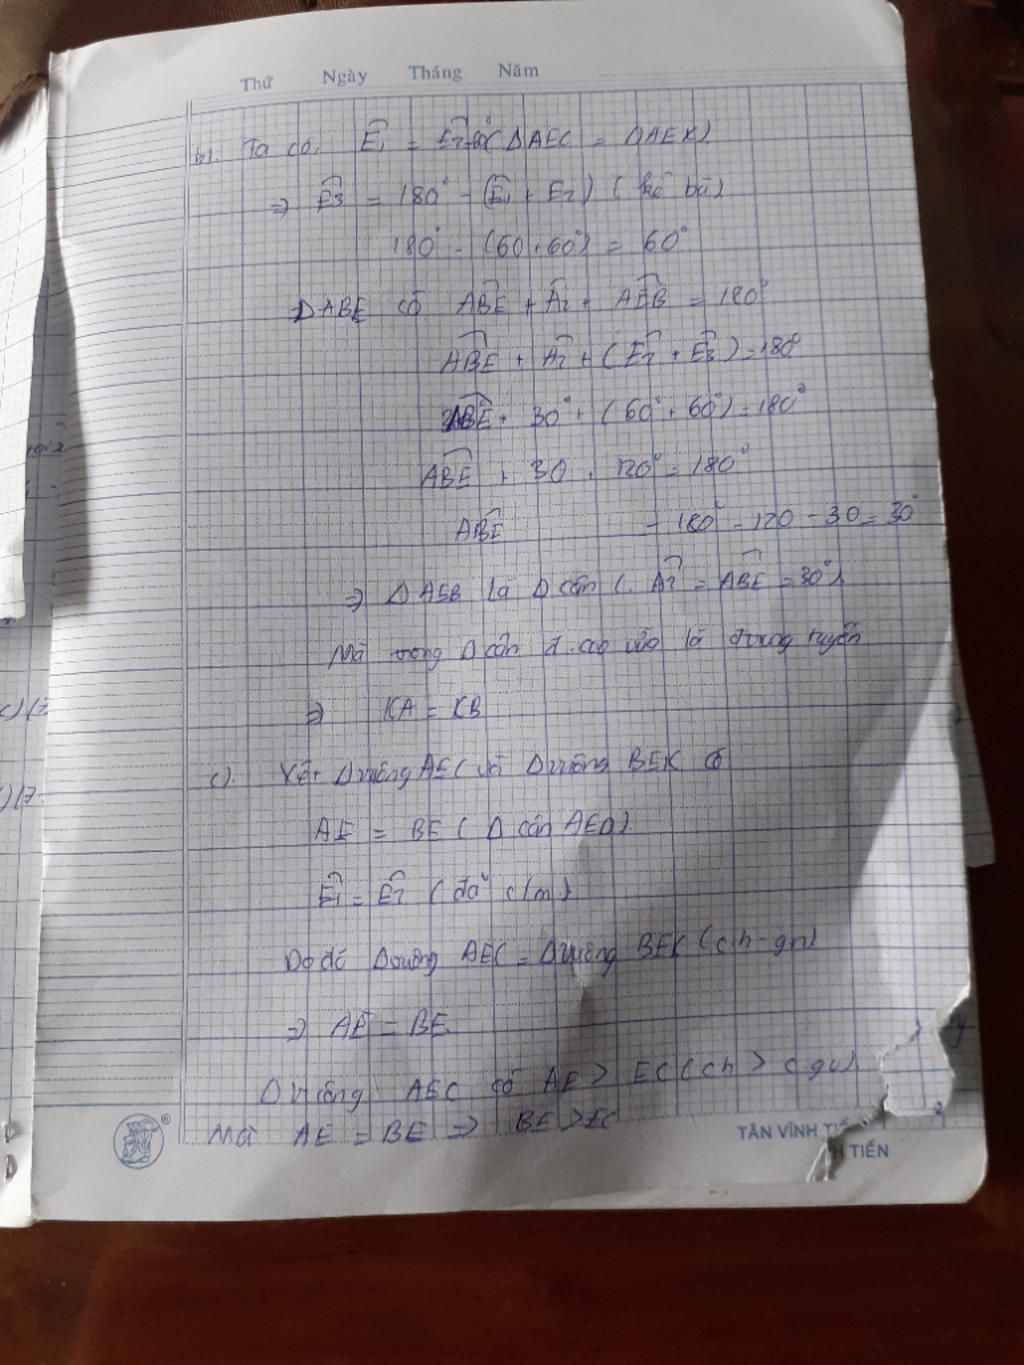 Thứ Ngày Tháng Năm
b). Ta có. Ê₁ = Ê₂ (ΔAEC = ΔAEK)
⇒ Ê3 = 180° - (Ê₁ + E₂) (kề bù)
180° - (60 + 60°) = 60°
ΔABE có ABE + Â₂ + AEB = 180°
ABE + Â₂ + (Ê₂ + Ê3) = 180°
ABE + 30° + (60° + 60°) = 180°
ABE + 30 + 120° = 180°
ABE = 180° - 120 - 30 = 30°
⇒ ΔAEB là Δ cân (. Â₂ = ABE = 30°)
Mà trong Δ cân đ. cao vừa là đường tuyến
⇒ KA = KB
c). Xét Δ vuông AEC và Δ vuông BEK có
AE = BE (Δ cân
Ê₁ = Ê₂ (đã c/m)
Do đó Δ vuông AEC = Δ vuông BEK (ch - gn)
⇒ AE = BE
Δ vuông AEC có AE > EC (ch > cgv)
Mà AE = BE ⇒ BE > EC
TÂN VĨNH TI
H TIẾN